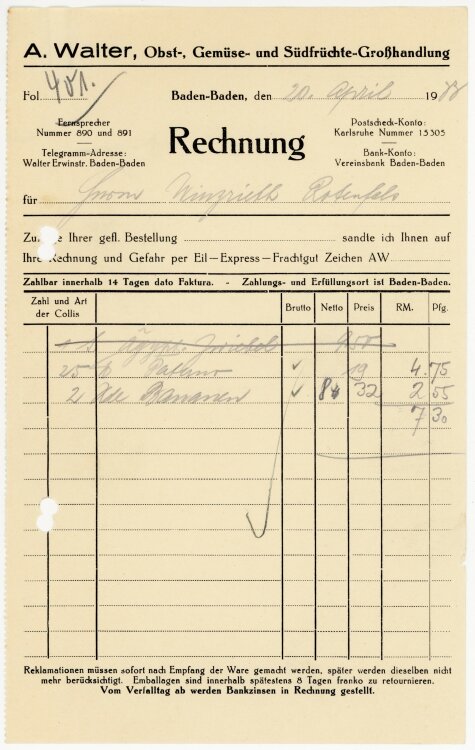 A. Walter, Obst-, Gemüse- und Südfrüchte-Großhandlung
Fol. 401.
Baden-Baden, den 20. April 19
Fernsprecher
Nummer 890 und 891
Telegramm-Adresse:
Walter Erwinstr. Baden-Baden
Rechnung
Postscheck-Konto:
Karlsruhe Nummer 15305
Bank-Konto:
Vereinsbank Baden-Baden
für Herrn Rotenfels
Ihrer gefl. Bestellung sandte ich Ihnen auf
Ihre Rechnung und Gefahr per Eil—Express—Frachtgut Zeichen AW
Zahlbar innerhalb 14 Tagen dato Faktura. - Zahlungs- und Erfüllungsort ist Baden-Baden.
Zahl und Art der Collis Brutto Netto Preis RM. Pfg.
1 Ägypt. Zwiebel 9.50
25 19 4.75
2 Bananen 84 32 2 55
7 30
Reklamationen müssen sofort nach Empfang der Ware gemacht werden, später werden dieselben nicht
mehr berücksichtigt. Emballagen sind innerhalb spätestens 8 Tagen franko zu retournieren.
Vom Verfalltag ab werden Bankzinsen in Rechnung gestellt.